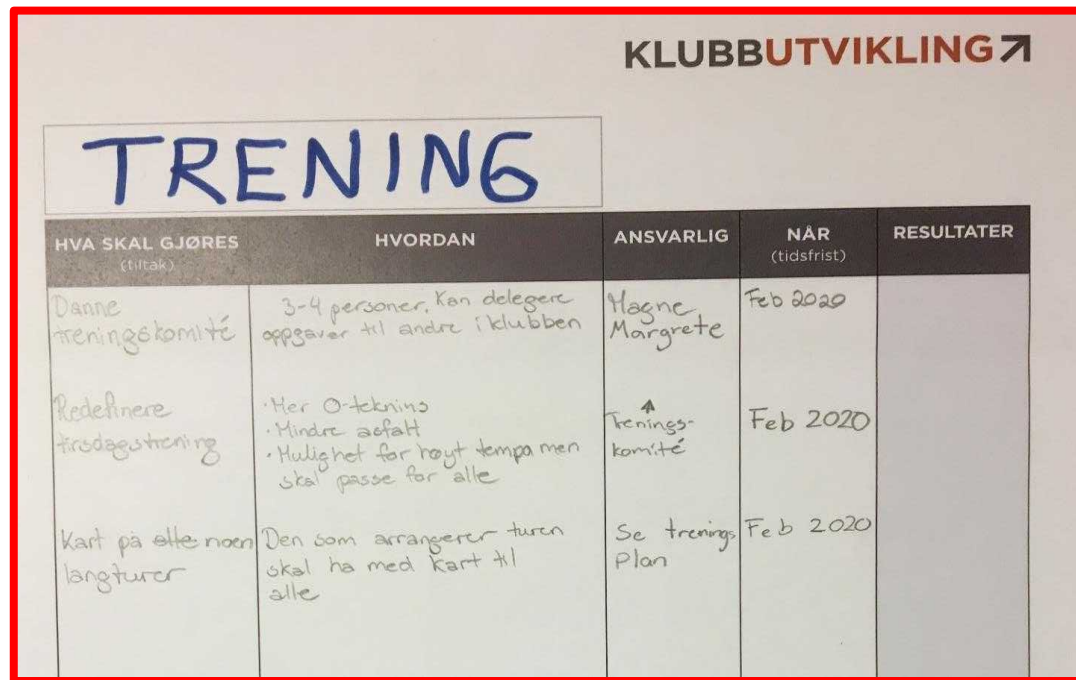 KLUBBUTVIKLING
TRENING
HVA SKAL GJØRES
(tiltak)
HVORDAN
ANSVARLIG
NÅR
(tidsfrist)
RESULTATER
Danne
treningskomité
3-4 personer. Kan delegere
oppgaver til andre i klubben
Magne
Margrete
Feb 2020
Redefinere
tirsdagstrening
· Mer O-teknins
· Mindre asfalt
· Mulighet for høyt tempo men
skal passe for alle
Trenings-
komité
Feb 2020
Kart på alle noen
langturer
Den som arrangerer turen
skal ha med kart til
alle
Se trenings
Plan
Feb 2020